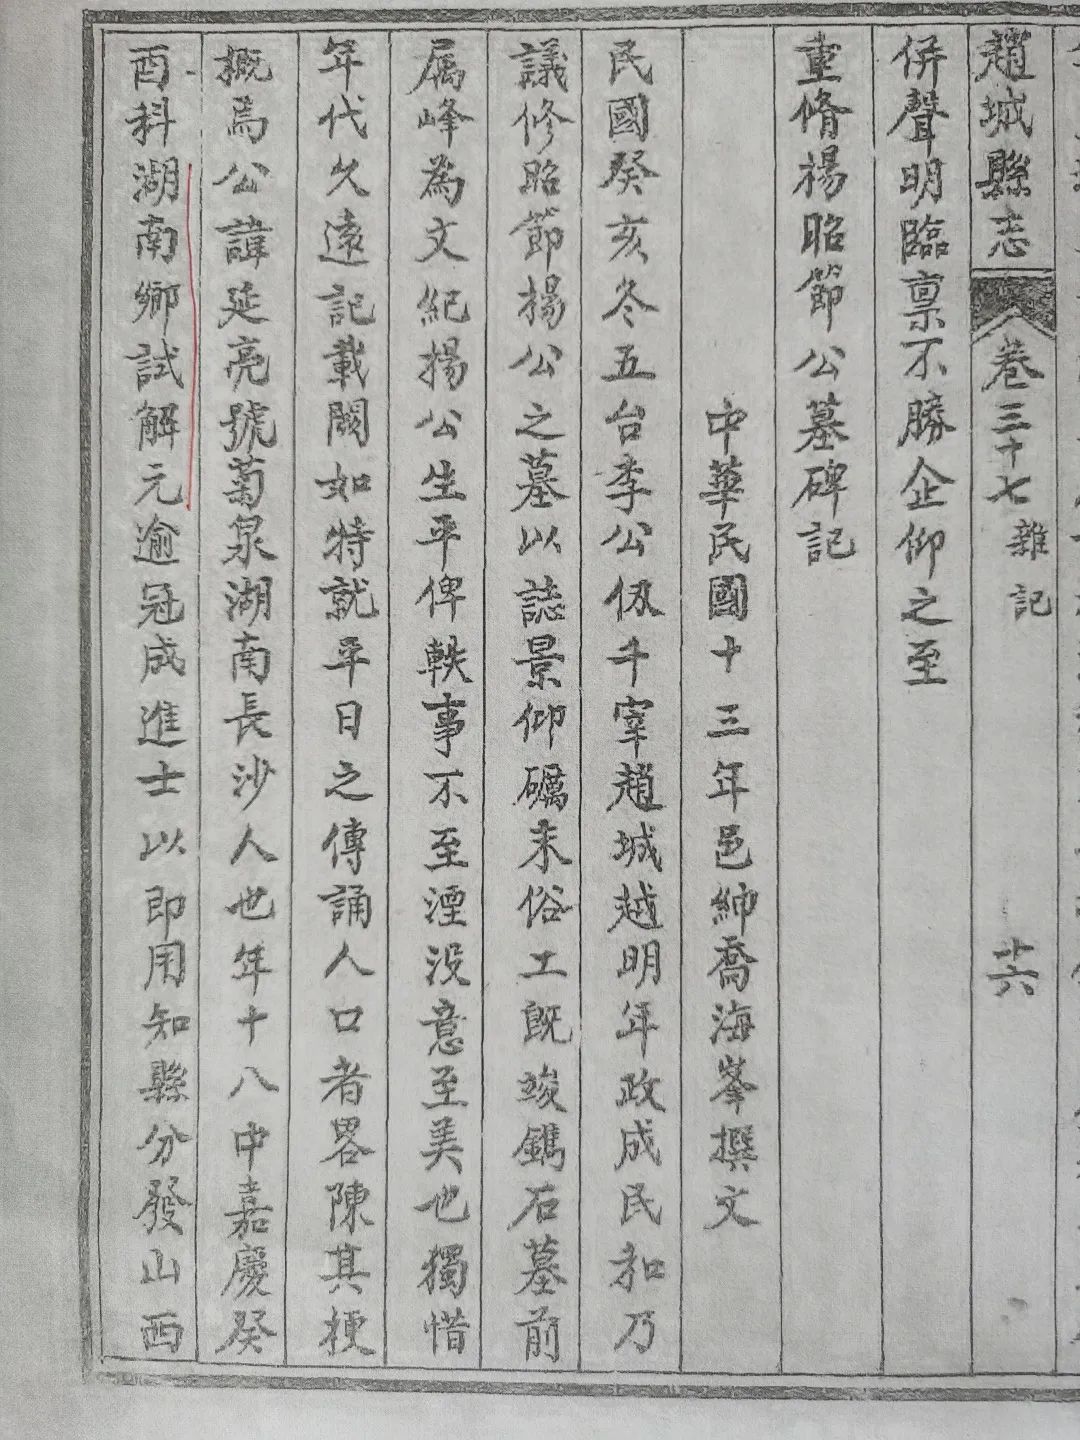 趙城縣志 卷三十七 雜記 廿六
併聲明臨稟不勝企仰之至
重脩楊昭節公墓碑記
中華民國十三年邑紳喬海峯撰文
民國癸亥冬五台李公伋千宰趙城越明年政成民和乃
議修昭節揚公之墓以誌景仰礪末俗工既竣鐫石墓前
属峰為文紀揚公生平俾軼事不至湮没意至美也獨惜
年代久遠記載闕如特就平日之傳誦人口者畧陳其梗
概焉公諱延亮號菊泉湖南長沙人也年十八中嘉慶癸
酉科湖南鄉試解元逾冠成進士以即用知縣分發山西